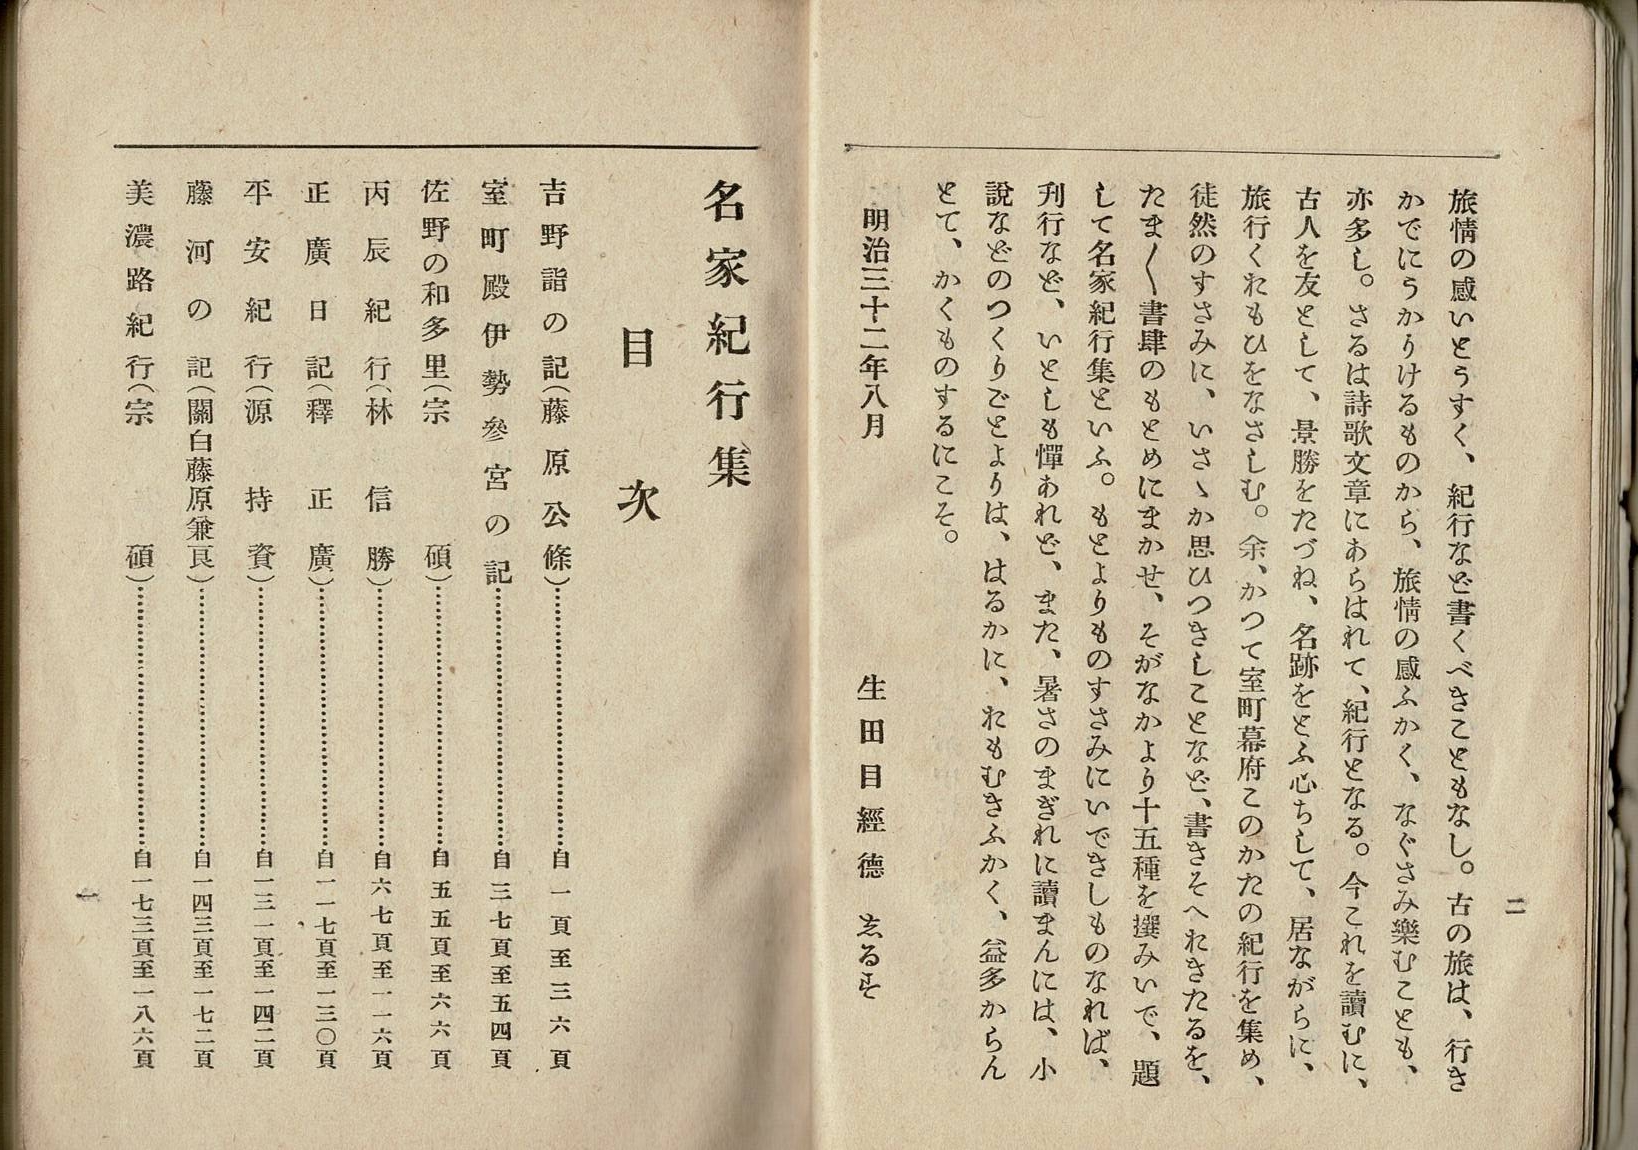 旅情の感いとうすく、紀行など書くべきこともなし。古の旅は、行き
かでにうかりけるものから、旅情の感ふかく、なぐさみ樂むことも、
亦多し。さるは詩歌文章にあらはれて、紀行となる。今これを讀むに、
古人を友として、景勝をたづね、名跡をとふ心ちして、居ながらに、
旅行くおもひをなさしむ。余、かつて室町幕府このかたの紀行を集め、
徒然のすさみに、いさゝか思ひつきしことなど、書きそへおきたるを、
たま〱書肆のもとめにまかせ、そがなかより十五種を撰みいで、題
して名家紀行集といふ。もとよりものすさみにいできしものなれば、
刋行など、いとしも憚あれど、また、暑さのまぎれに讀まんには、小
說などのつくりごとよりは、はるかに、おもむきふかく、益多からん
とて、かくものするにこそ。
明治三十二年八月
生田目經德 ゑるす
二
名家紀行集
目次
吉野詣の記(藤原公條)………自一頁至三六頁
室町殿伊勢參宮の記………自三七頁至五四頁
佐野の和多里(宗碩)………自五五頁至六六頁
丙辰紀行(林信勝)………自六七頁至一一六頁
正廣日記(釋正廣)………自一一七頁至一三〇頁
平安紀行(源持資)………自一三一頁至一四二頁
藤河の記(關白藤原兼良)………自一四三頁至一七二頁
美濃路紀行(宗碩)………自一七三頁至一八六頁
一